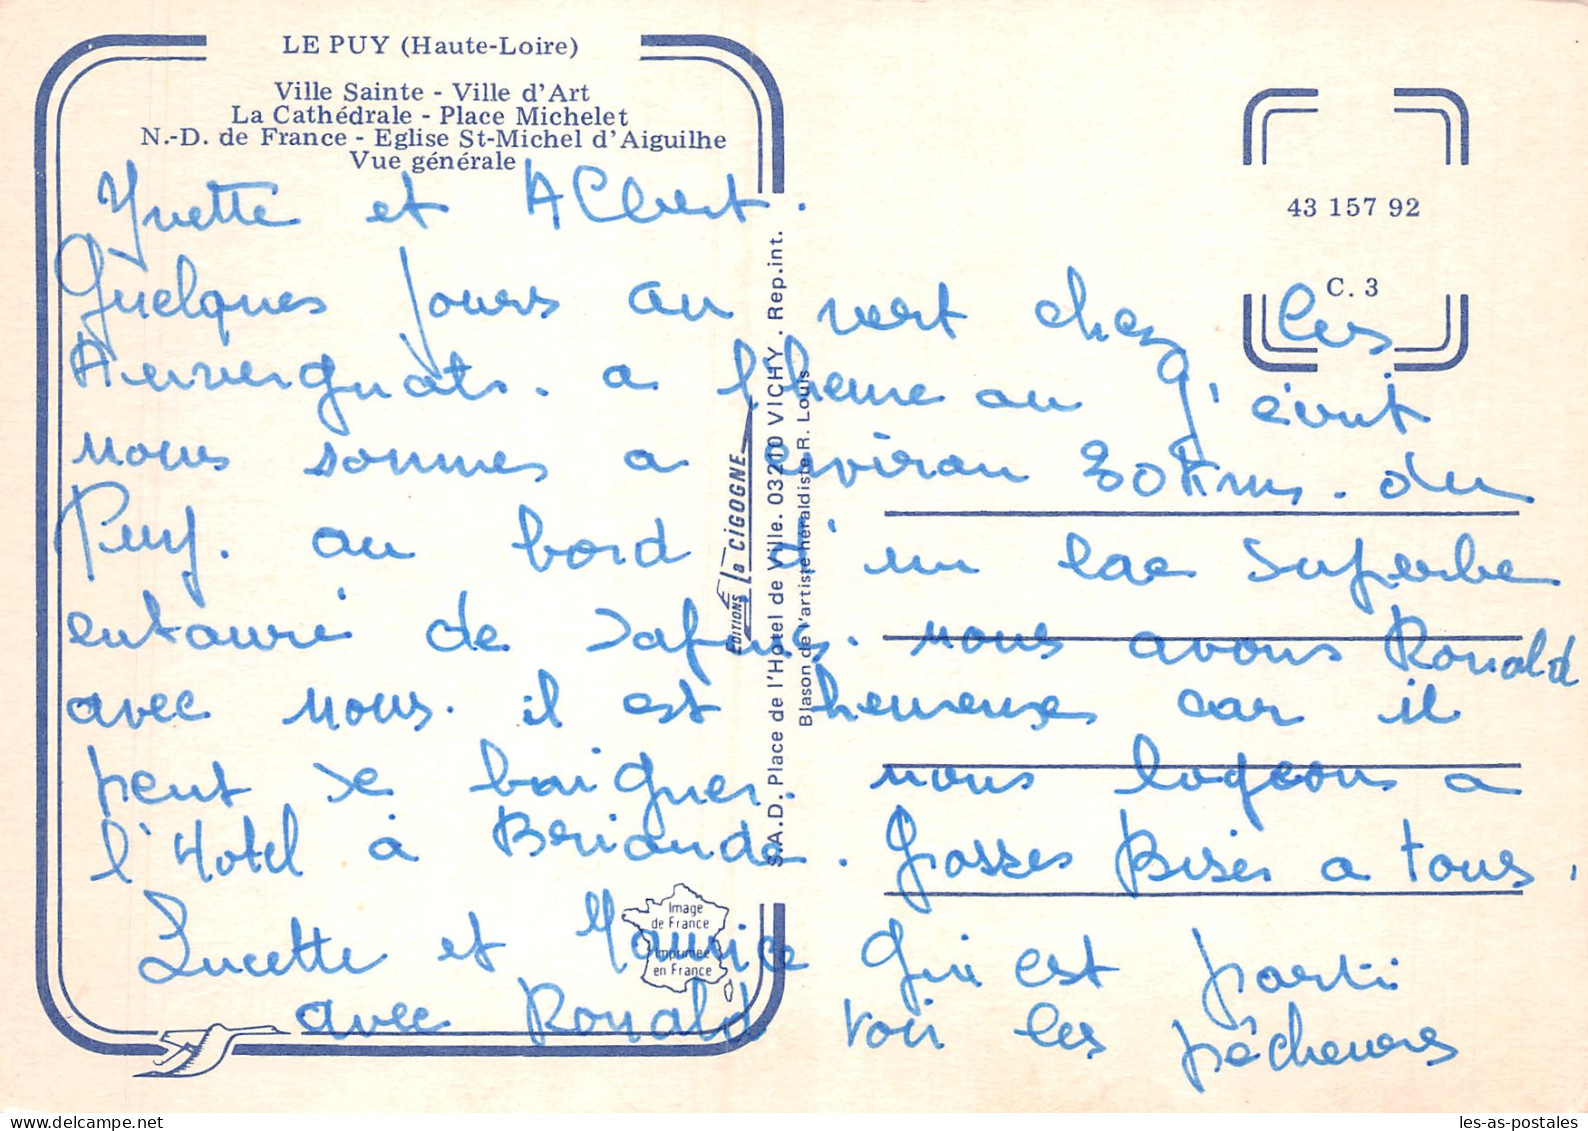 LE PUY (Haute-Loire)
Ville Sainte - Ville d'Art
La Cathédrale - Place Michelet
N.-D. de France - Eglise St-Michel d'Aiguilhe
Vue générale
43 157 92
C. 3
Yvette et Albert.
Quelques jours au vert chez les
Auvergnats. a l'heure au q' écrit
nous sommes a environ 30 Kms. du
Puy. au bord d'un lac superbe
entouré de sapins. nous avons Ronald
avec nous. il est heureux car il
peut se baigner. nous logeons a
l'Hotel à Briande. Grosses Bises a tous.
Lucette et Maurice qui est parti
avec Ronald voir les pêcheurs
EDITIONS La CIGOGNE
S.A.D. Place de l'Hôtel de Ville. 03200 VICHY. Rep.int.
Blason de l'artiste héraldiste R. Louis
Image
de France
Imprimée
en France
les-as-postales